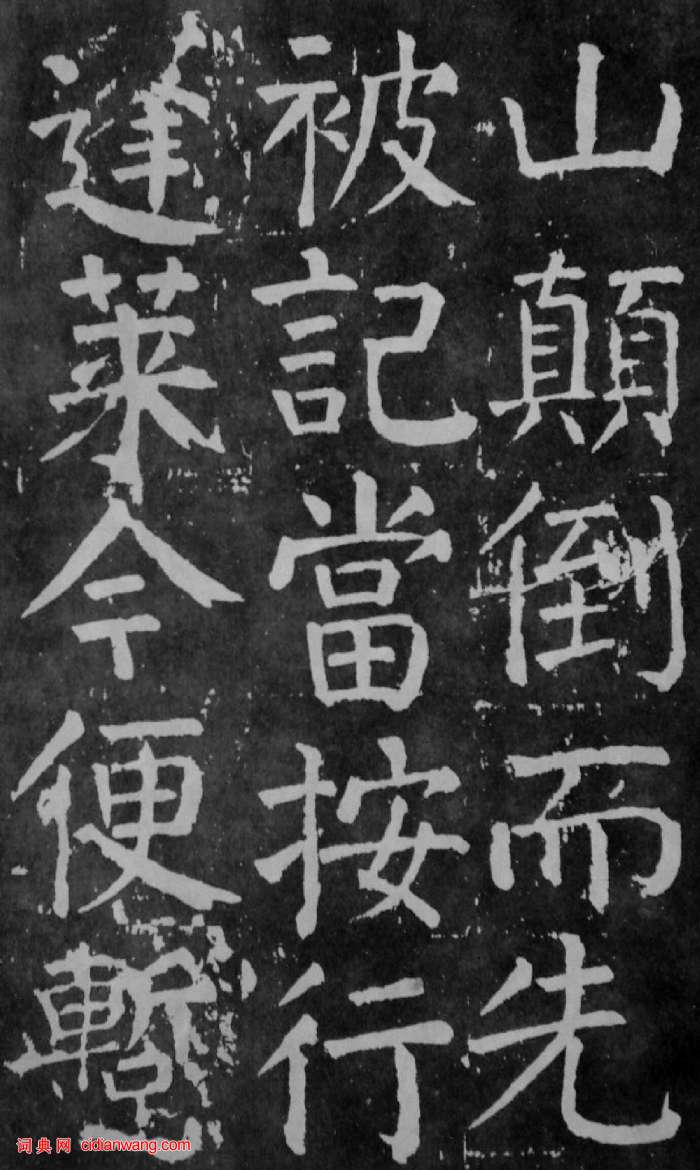 山顛倒而先
被記當按行
逢萊今便暫
词典网 cidianwang.com